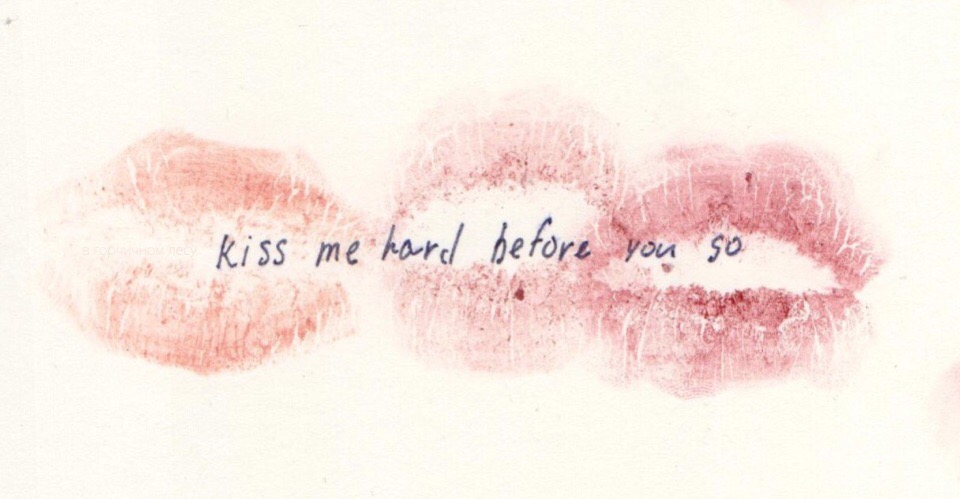 в горчичном лесу
kiss me hard before you go